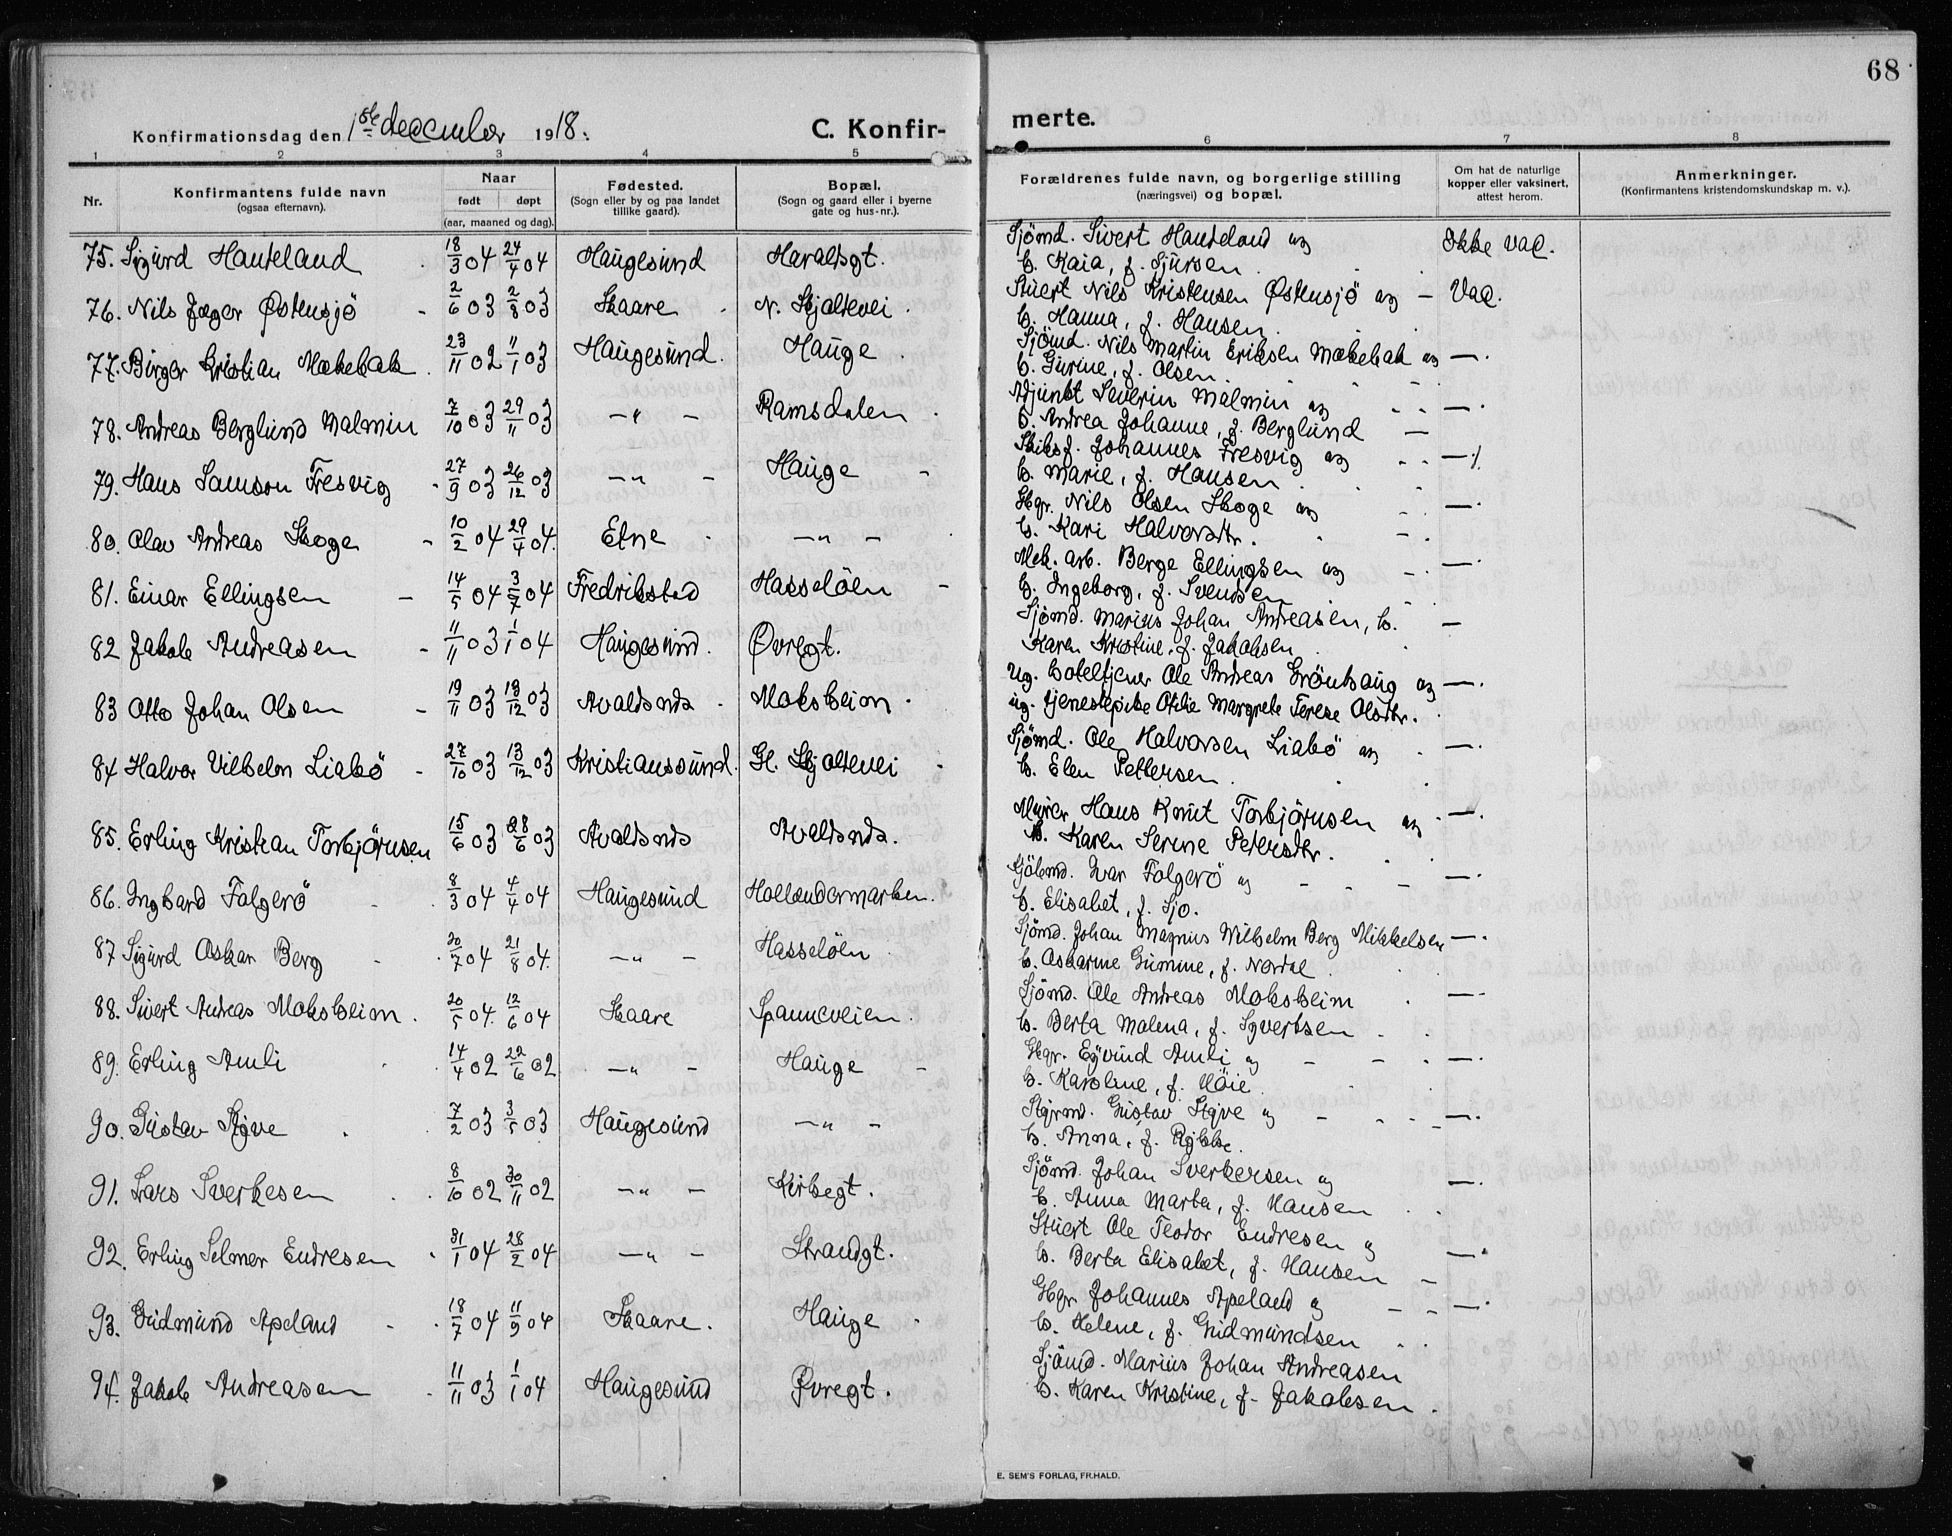 68
Konfirmationsdag den 1ste december 1918. C. Konfirmerte.
1 2 3 4 5 6 7 8
Nr. Konfirmantens fulde navn (ogsaa efternavn). Naar født døpt (aar, maaned og dag). Fødested. (Sogn eller by og paa landet tillike gaard). Bopæl. (Sogn og gaard eller i byerne gate og hus-nr.). Forældrenes fulde navn, og borgerlige stilling (næringsvei) og bopæl. Om hat de naturlige kopper eller vaksinert, attest herom. Anmerkninger. (Konfirmantens kristendomskundskap m. v.).
75. Sigurd Hauteland 18/3 04 24/4 04 Haugesund Haraldsgt. Sjömd. Sivert Hauteland og Ikke vac.
h. Kaia, f. Sjursen
76. Nils Jæger Østensjö - 2/6 03 2/8 03 Skaare N. Skjoltevei. Stuert Nils Kristensen Østensjö og - Vac.
h. Hanna, f. Hansen.
77. Birger Kristian Mækebak. 23/11 02 11/1 03 Haugesund. Hauge Sjömd. Nils Martin Eriksen Mækebak og -
h. Gurine, f. Olsen.
78. Andreas Berglund Malmin 7/10 03 29/11 03 -"- Ramsdalen Adjunkt Severin Malmin og -
h. Andrea Johanne, f. Berglund
79. Hans Samson Fresvig 27/9 03 26/12 03 -"- Hauge - Skibsf. Johannes Fresvig og -
h. Marie, f. Hansen.
80. Olav Andreas Skoge - 10/2 04 29/4 04. Etne -"- Hgr. Nils Olsen Skoge og -
h. Kari Halvorsdtr.
81. Einar Ellingsen - 14/5 04 3/7 04 Fredrikstad Hasselöen - Mek. arb. Berge Ellingsen og -
h. Ingeborg, f. Svendsen
82 Jakob Andreasen - 11/11 03 1/1 04 Haugesund. Øvregt. Sjömd. Marius Johan Andreasen, h. -
Karen Kristine, f. Jakobsen
83 Otto Johan Olsen - 19/11 03 18/12 03 Avaldsnds Moksheim. ug. hoteltjener Ole Andreas Grönhaug og -
ug. tjenestepike Otilie Margrete Terese Olsdtr.
84 Halvor Vilhelm Liabö - 27/10 03 13/12 03 Kristianssund. Gl. Skjoltevei Sjömd. Ole Halvorsen Liabö og -
h. Elen Pettersen
85. Erling Kristian Torbjörnsen 15/6 03 28/6 03 Avaldsnds Avaldsnds. Murer Hans Knut Torbjörnsen og -
h. Karen Serine Petersdtr.
86. Ingvard Folgerö 8/3 04 4/4 04 Haugesund Hollendermarken. Kjöbmd. Ivar Folgerö og -
h. Elisabet, f. Sjo.
87 Sigurd Oskar Berg 20/7 04 21/8 04. -"- Hasselöen Sjömd. Johan Magnus Wilhelm Berg Mikkelsen -
h. Oskarine Gurine, f. Nordal
88. Sivert Andreas Moksheim. 20/5 04. 12/6 04 Skaare Spanneveien. Sjömd. Ole Andreas Moksheim -
h. Berta Malena, f. Syvertsen
89. Erling Amli 14/4 02 22/6 02 -"- Hauge - Hgr. Eyvind Amli og -
h. Karoline, f. Höie
90. Gustav Styve 7/2 03 3/5 03 Haugesund -"- Styrmd. Gustav Styve og -
h. Anna, f. Rykke.
91. Lars Sverkesen 8/10 02 30/11 02 -"- Kirkegt. Sjömd. Johan Sverkersen og -
h. Anna Marta, f. Hansen
92. Erling Selmer Endresen 31/1 04 28/2 04 -"- Strandgt. Stuert Ole Teodor Endresen og -
h. Berta Elisabet, f. Hansen -
93. Gudmund Apeland 18/7 04 11/9 04 Skaare. Hauge Hgr Johannes Apeland og -
h. Helene, f. Gudmundsen
94. Jakob Andreasen 11/11 03 1/1 04 Haugesund Øvregt. Sjömd. Marius Johan Andreasen
h. Karen Kristine, f. Jakobsen.
E. SEM'S FORLAG, FR.HALD.